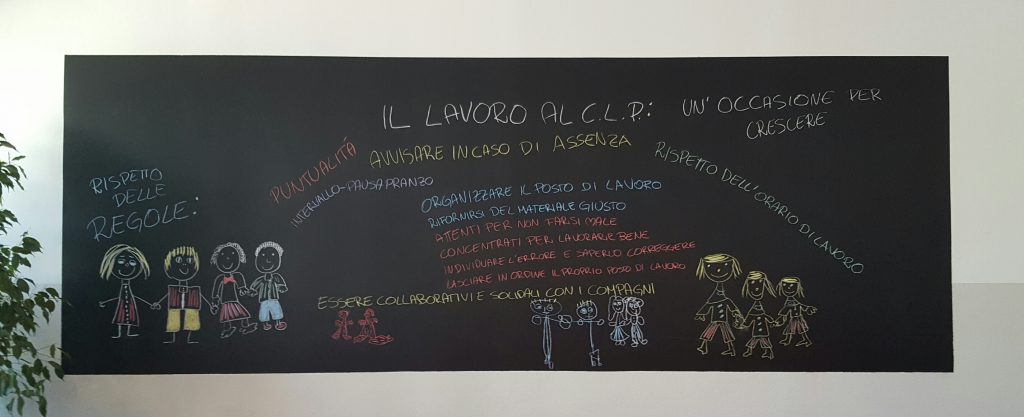 IL LAVORO AL C.L.P.:
UN' OCCASIONE PER
CRESCERE
RISPETTO
DELLE
REGOLE:
PUNTUALITÁ
AVVISARE IN CASO DI ASSENZA
INTERVALLO-PAUSA PRANZO
RISPETTO DELL'ORARIO DI LAVORO
ORGANIZZARE IL POSTO DI LAVORO
RIFORNIRSI DEL MATERIALE GIUSTO
ATTENTI PER NON FARSI MALE
CONCENTRATI PER LAVORARE BENE
INDIVIDUARE L'ERRORE E SAPERLO CORREGGERE
LASCIARE IN ORDINE IL PROPRIO POSTO DI LAVORO
ESSERE COLLABORATIVI E SOLIDALI CON I COMPAGNI